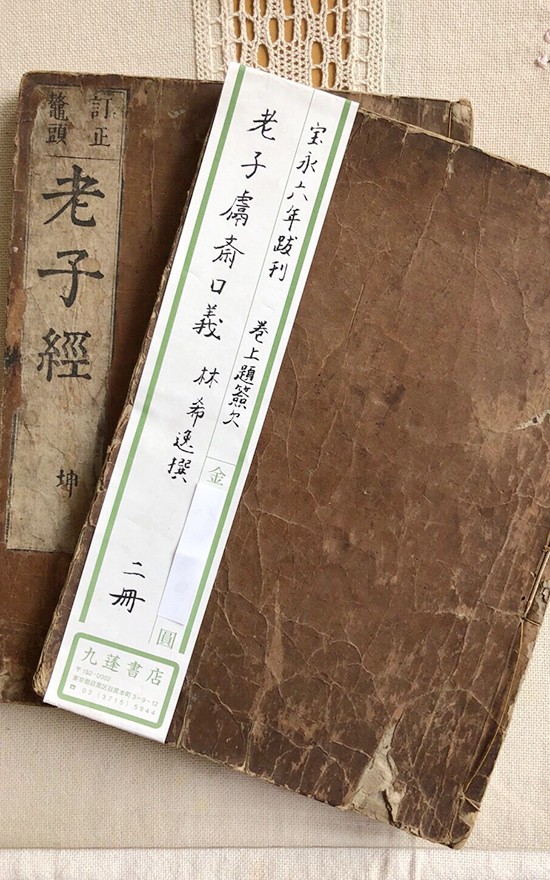 訂正
鼇頭
老子經
坤
宝永六年跋刊 巻上題簽欠
老子鬳斎口義 林希逸撰
二冊
金
圓
九蓬書店
〒152-0002
東京都目黒区目黒本町3-9-12
☎ 03 (3715) 5944